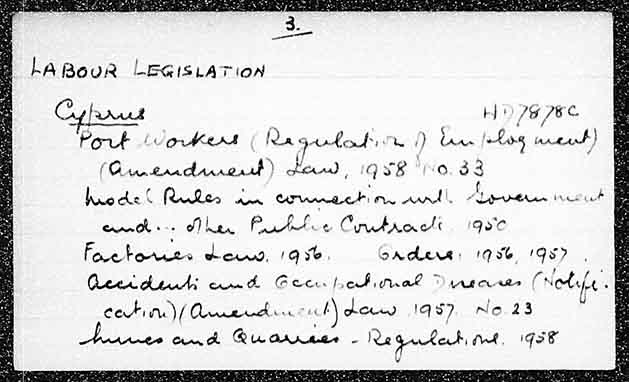 3.
LABOUR LEGISLATION
Cyprus HD7878C
Port Workers (Regulation of Employment)
(Amendment) Law, 1958 No. 33
Model Rules in connection with Government
and... other Public Contracts. 1950
Factories Law. 1956. Orders. 1956, 1957.
Accidents and Occupational Diseases (Notifi-
cation) (Amendment) Law 1957. No. 23
Mines and Quarries - Regulations. 1958